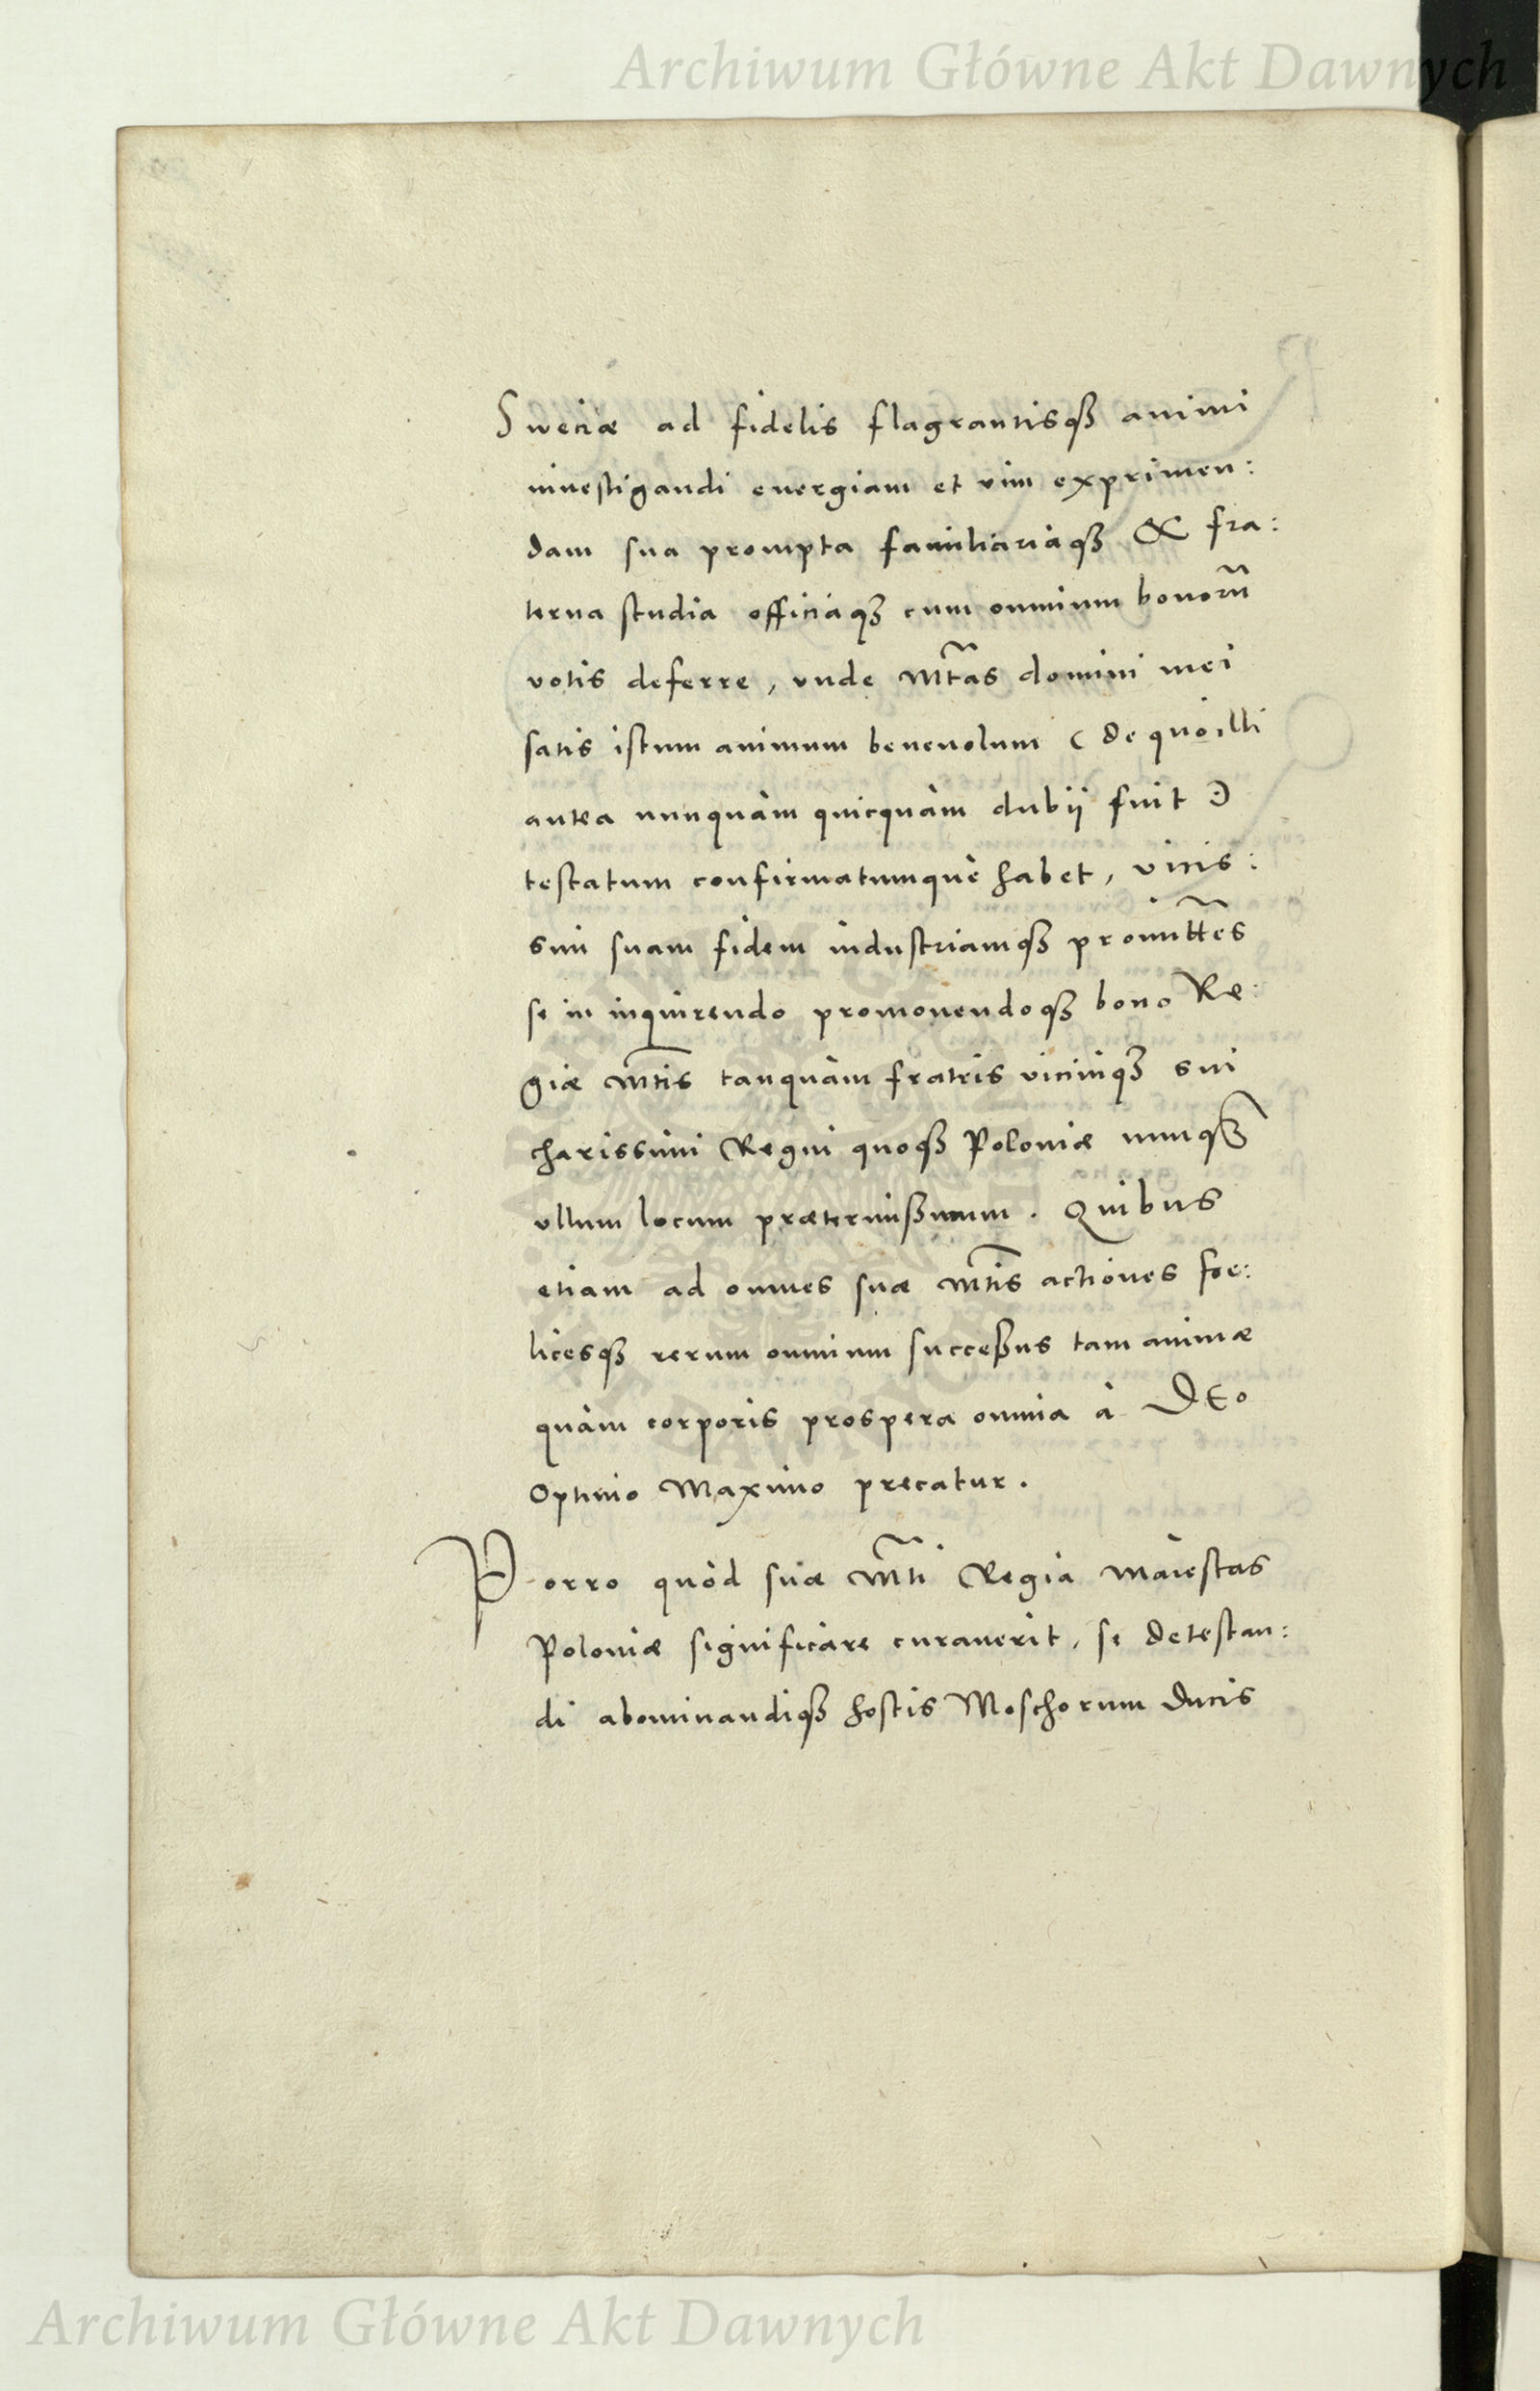 Archiwum Główne Akt Dawnych
Sweciæ ad fidelis flagrantisqȝ animi
inuestigandi energiam et vim exprimen:
dam sua prompta familiariaqȝ & fra:
terna studia officiaqȝ cum omnium bonorũ
votis deferre, vnde Mtas domini mei
satis istum animum beneuolum (de quo illi
antea nunquàm quicquàm dubij fuit)
testatum confirmatumque habet, vicis:
sim suam fidem industriamqȝ promittẽs
se in inquirendo promouendoqȝ bono Re:
giæ Mtis tanquàm fratris viciniqȝ sui
charissimi Regni quoqȝ Poloniæ nunqȝ
vllum locum prætermißurum. Quibus
etiam ad omnes suæ Mtis actiones foe:
licesqȝ rerum omnium succeßus tam animæ
quàm corporis prospera omnia à DEO
Optimo Maximo precatur.
Porro quòd suæ Mti Regia Maiestas
Poloniæ significàre curauerit, se detestan:
di abominandiqȝ hostis Moschorum Ducis
Archiwum Główne Akt Dawnych